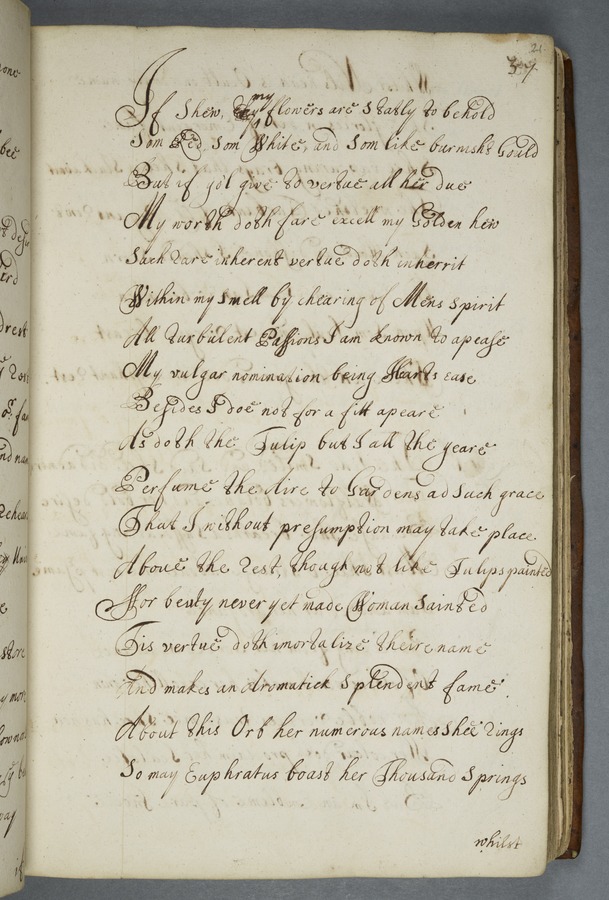 21
If Shew, my flowers are Statly to behold
Som Red, Som White, and Som like burnisht Gould
But if you'l give to vertue all her due
My worth doth fare excell my Golden hew
Such rare inherent vertue doth inherrit
Within my Smell by chearing of Mens Spirit
All turbulent Passions I am known to apease
My vulgar nomination being Hearts ease
Besides I doe not for a fitt apeare
As doth the Tulip but I all the yeare
Perfume the Aire to Gardens ad Such grace
That I without presumption may take place
Above the rest, though not like Tulips painted
For beuty never yet made Woman Sainted
Tis vertue doth imortalize theire name
And makes an Aromatick Splendent fame
About this Orb her numerous names Shee rings
So may Euphratus boast her Thousand Springs
whilst